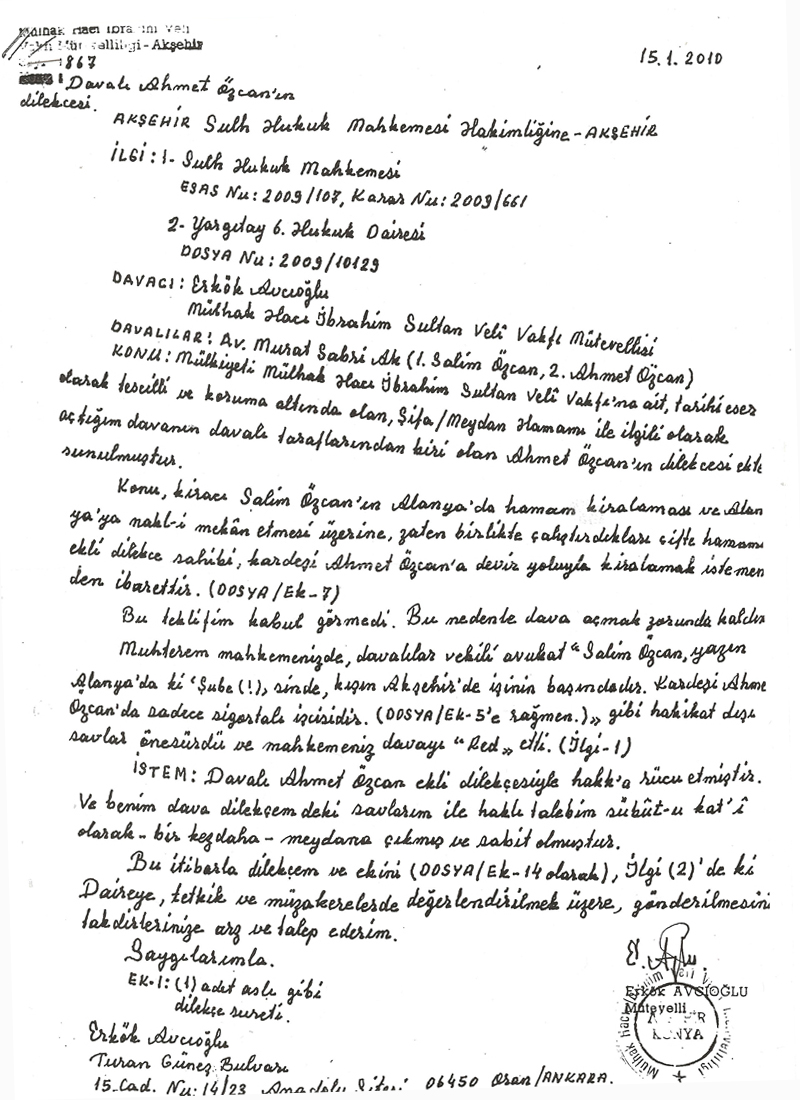 Mülhak Hacı İbrahim Veli
Vakfı Mütevelliliği-Akşehir
1867
15.1.2010
Davalı Ahmet Özcan'ın
dilekçesi.
AKŞEHİR Sulh Hukuk Mahkemesi Hakimliğine-AKŞEHİR
İLGİ: 1- Sulh Hukuk Mahkemesi
ESAS Nu: 2009/107, Karar Nu: 2009/661
2- Yargıtay 6. Hukuk Dairesi
DOSYA Nu: 2009/10129
DAVACI: Erkök Avcıoğlu
Mülhak Hacı İbrahim Sultan Velî Vakfı Mütevellisi
DAVALILAR: Av. Murat Sabri Ak (1. Salim Özcan, 2. Ahmet Özcan)
KONU: Mülkiyeti Mülhak Hacı İbrahim Sultan Velî Vakfı'na ait, tarihi eser
olarak tescilli ve koruma altında olan, Şifa/Meydan Hamamı ile ilgili olarak
açtığım davanın davalı taraflarından biri olan Ahmet Özcan'ın dilekçesi ekte
sunulmuştur.
Konu, kiracı Salim Özcan'ın Alanya'da hamam kiralaması ve Alan
ya'ya nakl-i mekân etmesi üzerine, zaten birlikte çalıştırdıkları çifte hamamı
ekli dilekçe sahibi, kardeşi Ahmet Özcan'a devir yoluyla kiralamak istemem
den ibarettir. (DOSYA/Ek-7)
Bu teklifim kabul görmedi. Bu nedenle dava açmak zorunda kaldım
Muhterem mahkemenizde, davalılar vekili avukat "Salim Özcan, yazın
Alanya'da ki 'Şube (!), sinde, kışın Akşehir'de işinin başındadır. Kardeşi Ahme
Özcan'da sadece sigortalı işcisidir. (DOSYA/Ek-5'e rağmen.)» gibi hakikat dışı
savlar önesürdü ve mahkemeniz davayı "Red" etti. (İlgi-1)
İSTEM: Davalı Ahmet Özcan ekli dilekçesiyle hakk'a rücu etmiştir.
Ve benim dava dilekçemdeki savlarım ile haklı talebim sübût-u kat'î
olarak - bir kezdaha - meydana çıkmış ve sabit olmuştur.
Bu itibarla dilekçem ve ekini (DOSYA/Ek-14 olarak), İlgi (2)'de ki
Daireye, tetkik ve müzakerelerde değerlendirilmek üzere, gönderilmesini
takdirlerinize arz ve talep ederim.
Saygılarımla.
EK-1: (1) adet aslı gibi
dilekçe sureti.
Erkök AVCIOĞLU
Mütevelli
KONYA
Erkök Avcıoğlu
Turan Güneş Bulvarı
15. Cad. Nu: 14/23 Anadolu Sitesi 06450 Oran/ANKARA.